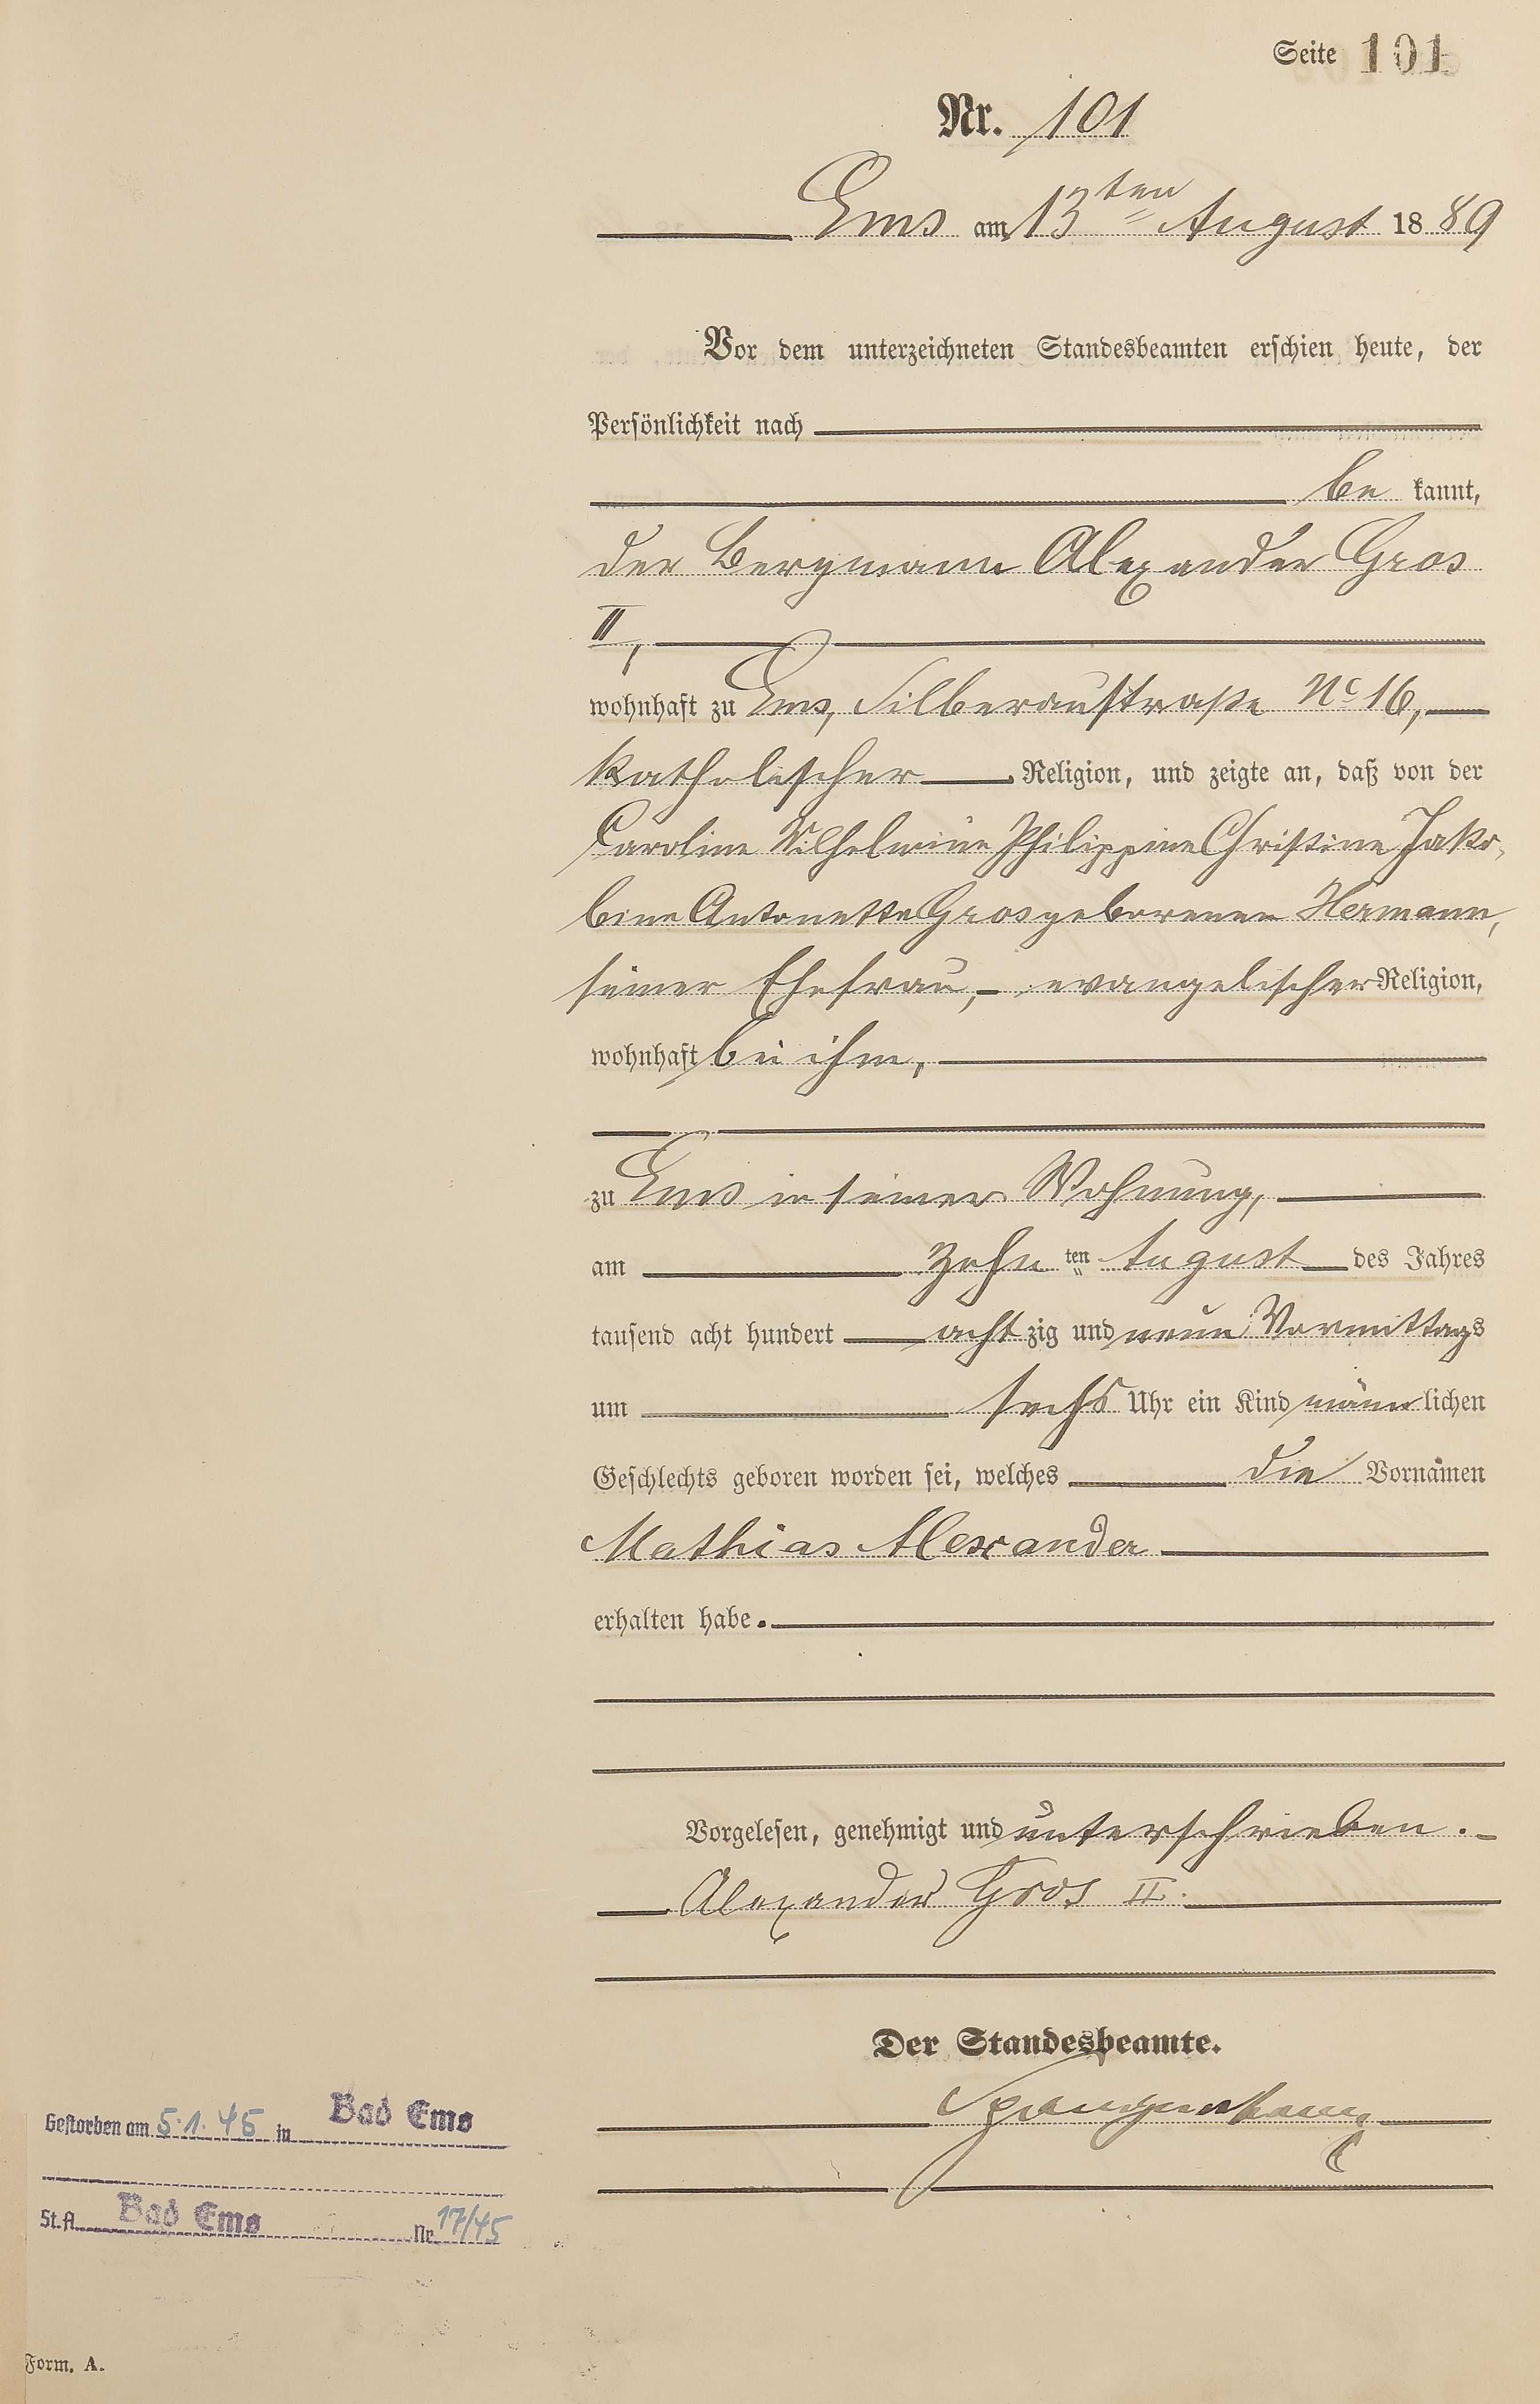 Seite 101
Nr. 101
Ems am 13ten August 1889
Vor dem unterzeichneten Standesbeamten erschien heute, der
Persönlichkeit nach
be kannt,
der Bergmann Alexander Gros
II,
wohnhaft zu Ems, Silberaustraße No 16,
katholischer Religion, und zeigte an, daß von der
Caroline Wilhelmine Philippine Christine Jako-
bine Antonette Gros geborenen Hermann,
seiner Ehefrau, evangelischer Religion,
wohnhaft bei ihm,
zu Ems in seiner Wohnung,
am zehn ten August des Jahres
tausend acht hundert acht zig und neun Vormittags
um sechs Uhr ein Kind männ lichen
Geschlechts geboren worden sei, welches die Vornamen
Mathias Alexander
erhalten habe.
Vorgelesen, genehmigt und unterschrieben.
Alexander Gros II.
Der Standesbeamte.
Spangenberg
Gestorben am 5.1.45 in Bad Ems
St.A. Bad Ems Nr. 17/45
Form. A.